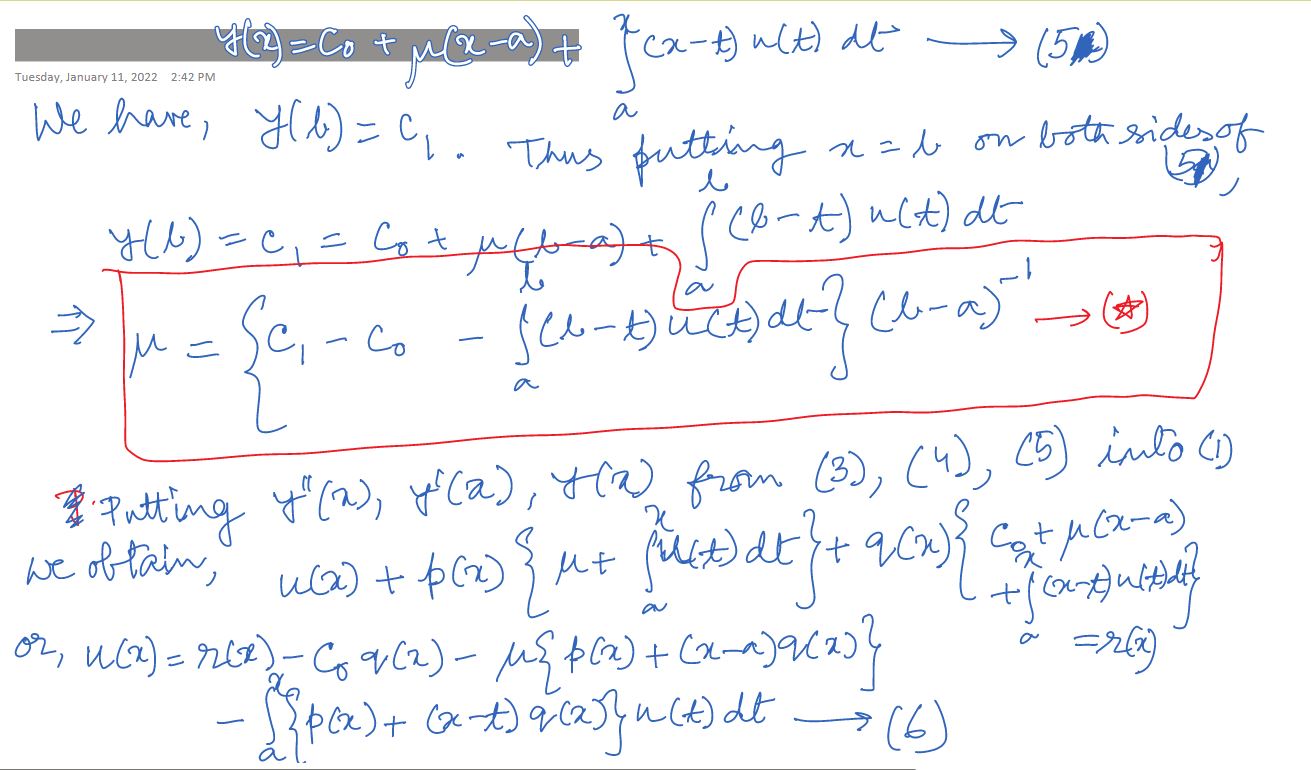 y(x) = C₀ + μ(x-a) + ∫ₐˣ (x-t) u(t) dt → (5)
Tuesday, January 11, 2022 2:42 PM
We have, y(b) = C₁. Thus putting x = b on both sides of (5),
y(b) = C₁ = C₀ + μ(b-a) + ∫ₐᵇ (b-t) u(t) dt
⇒ μ = {C₁ - C₀ - ∫ₐᵇ (b-t) u(t) dt} (b-a)⁻¹ → (☆)
Putting y''(x), y'(x), y(x) from (3), (4), (5) into (1)
we obtain, u(x) + p(x) {μ + ∫ₐˣ u(t) dt} + q(x) {C₀ + μ(x-a)
+ ∫ₐˣ (x-t) u(t) dt}
= r(x)
or, u(x) = r(x) - C₀ q(x) - μ{p(x) + (x-a) q(x)}
- ∫ₐˣ {p(x) + (x-t) q(x)} u(t) dt → (6)